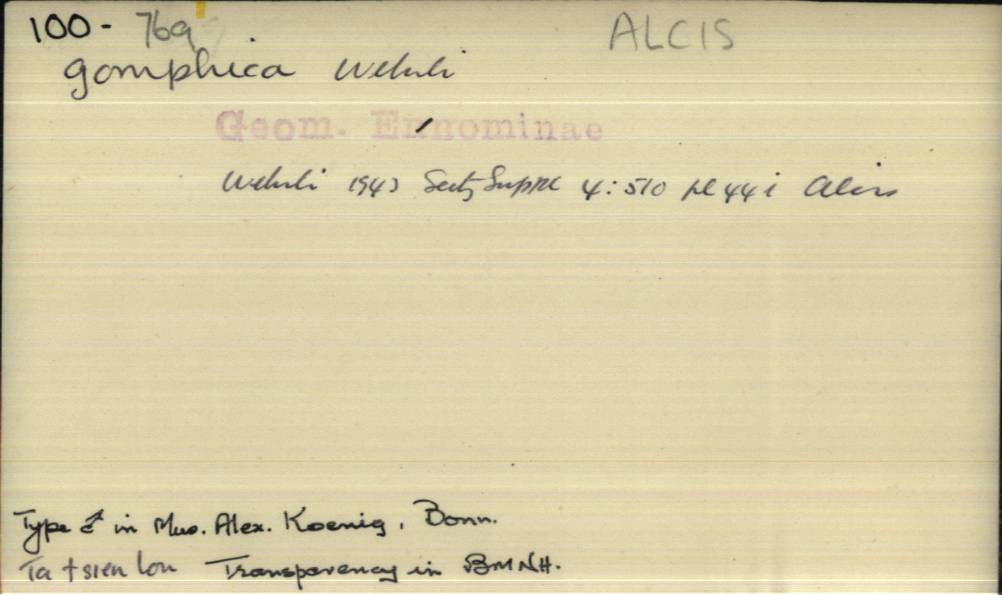 100- 769 ALCIS
gomphica Wehrli
Geom. Ennominae
Wehrli 1943 Seitz Suppl 4: 510 pl 44 i Alcis
Type ♂ in Mus. Alex. Koenig, Bonn.
Ta tsien lou Transparency in BMNH.